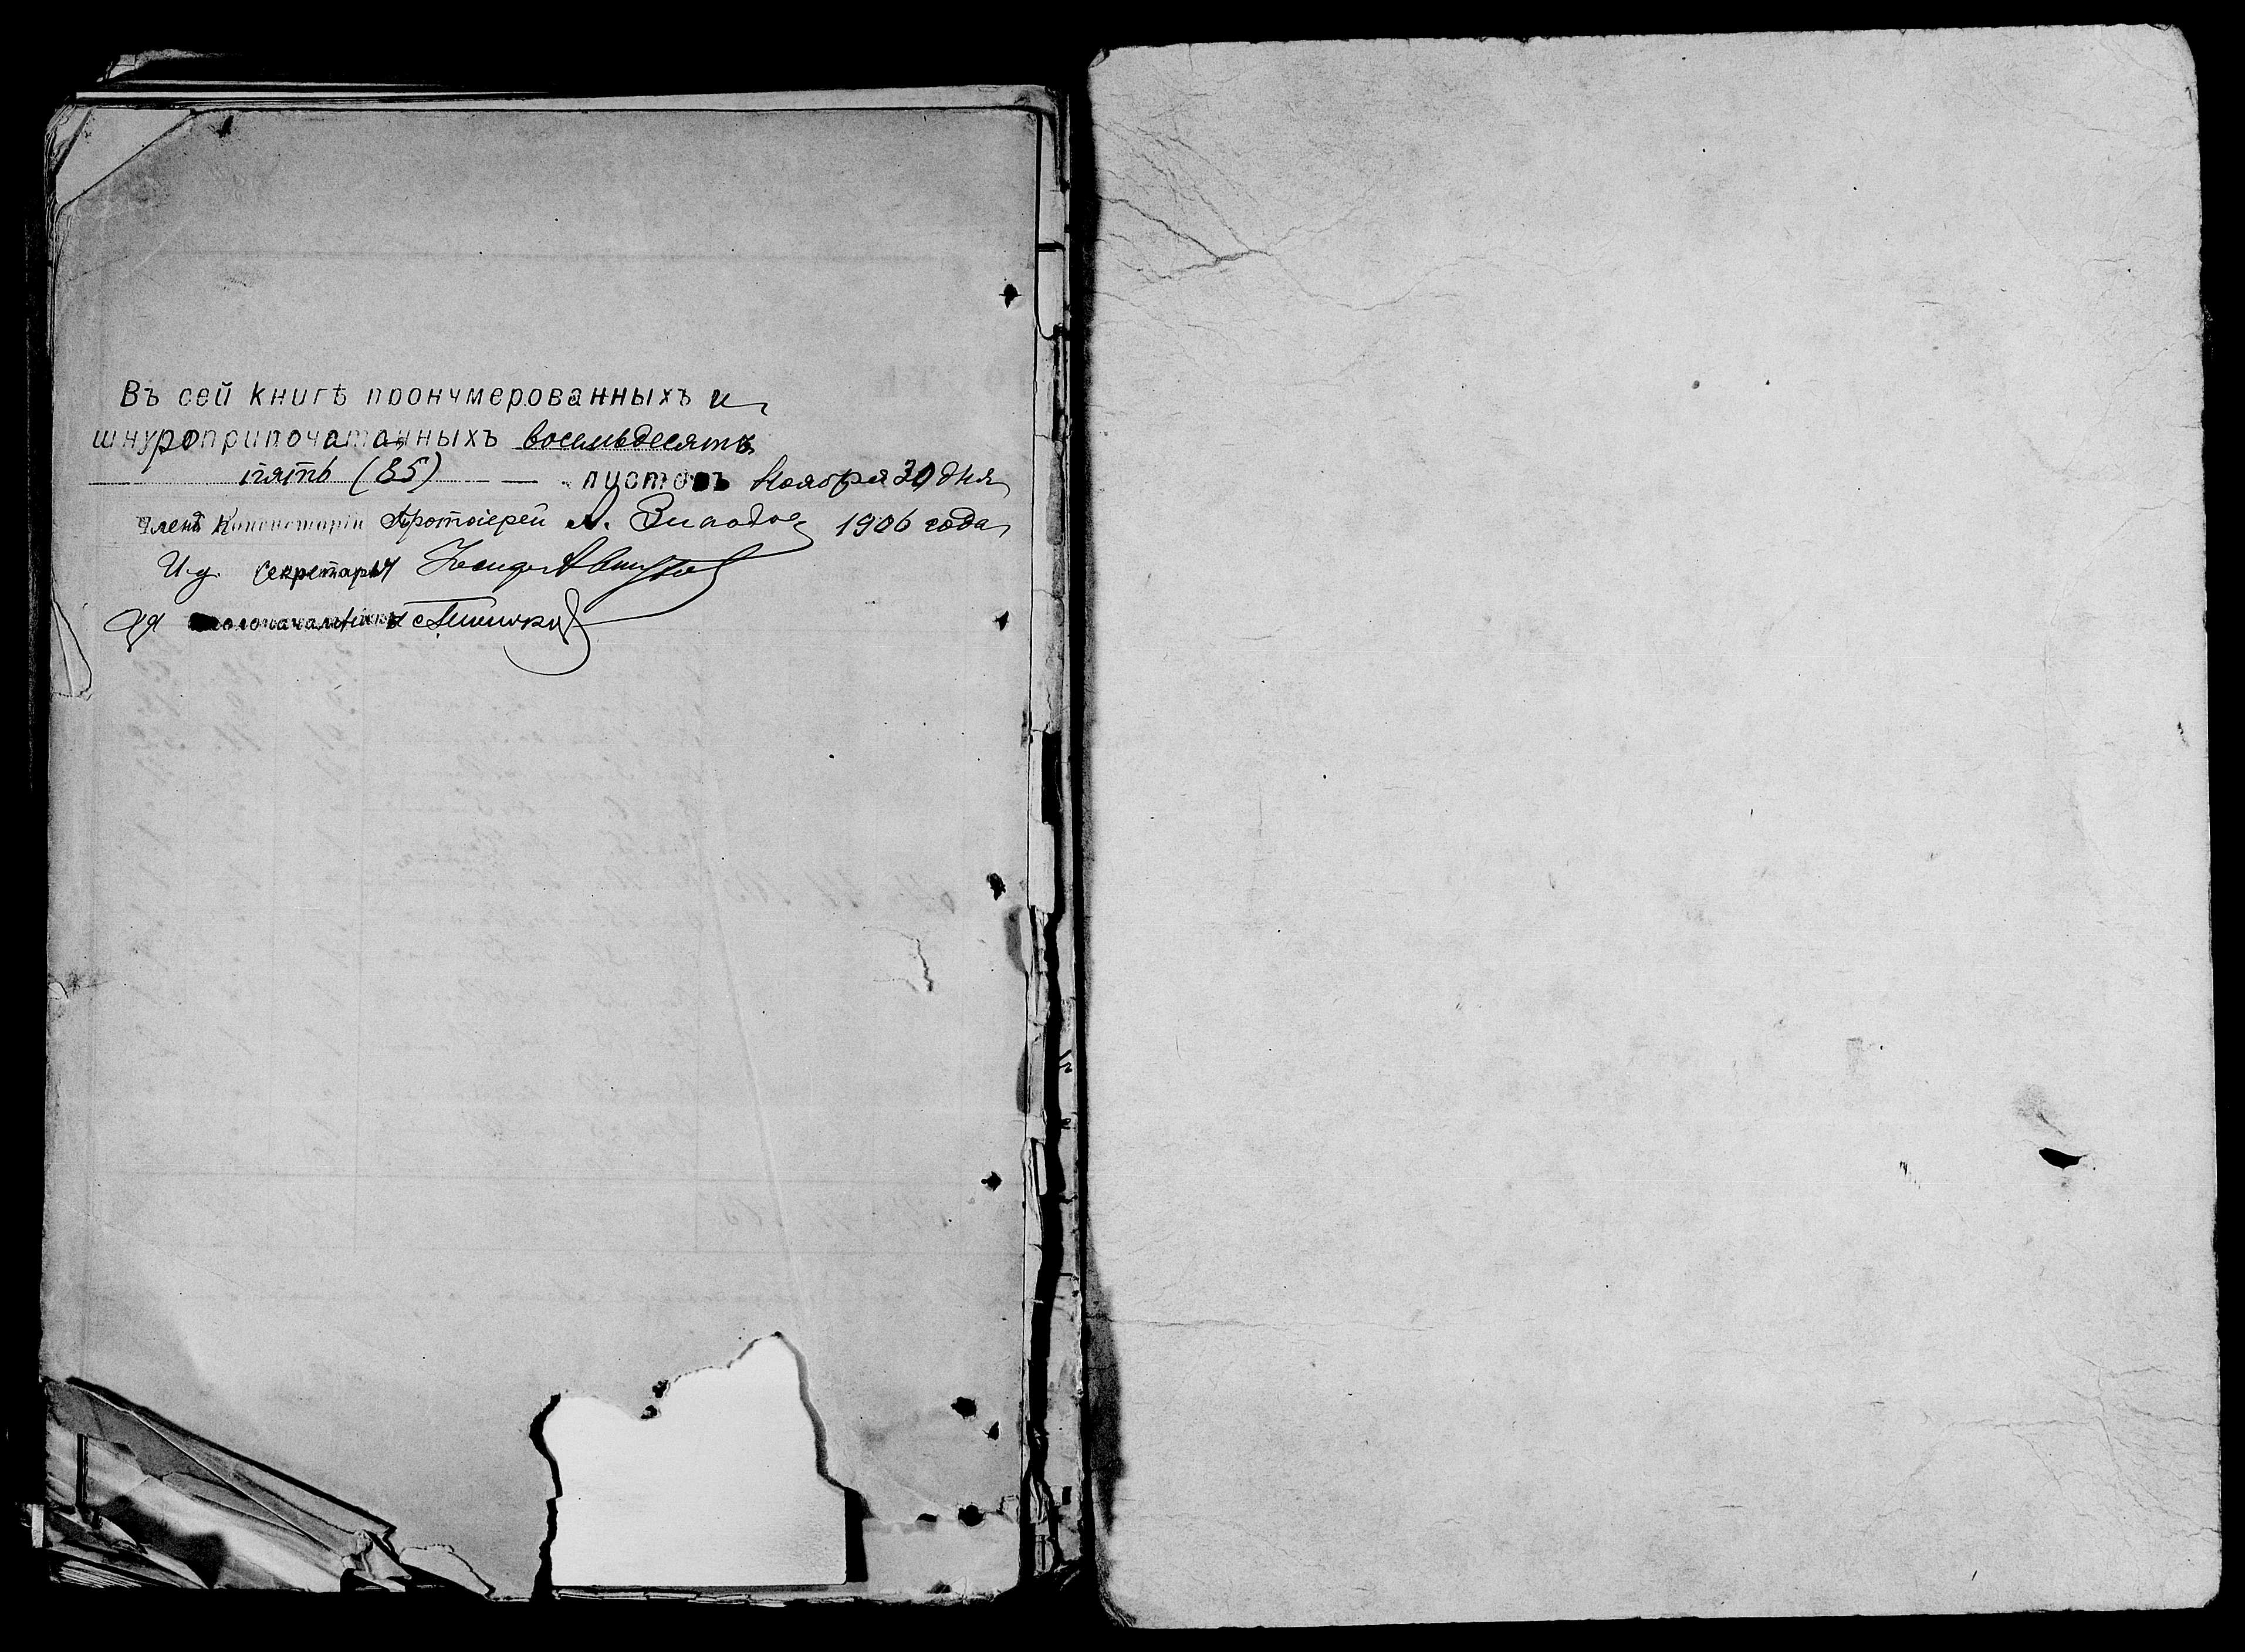 Въ сей книгѣ пронумерованныхъ и
шнуроприпечатанныхъ восемьдесятъ
пять (85) листовъ Ноября 30 дня
Членъ Консисторіи Протоіерей А. 1906 года
И. д. Секретаря
Столоначальника